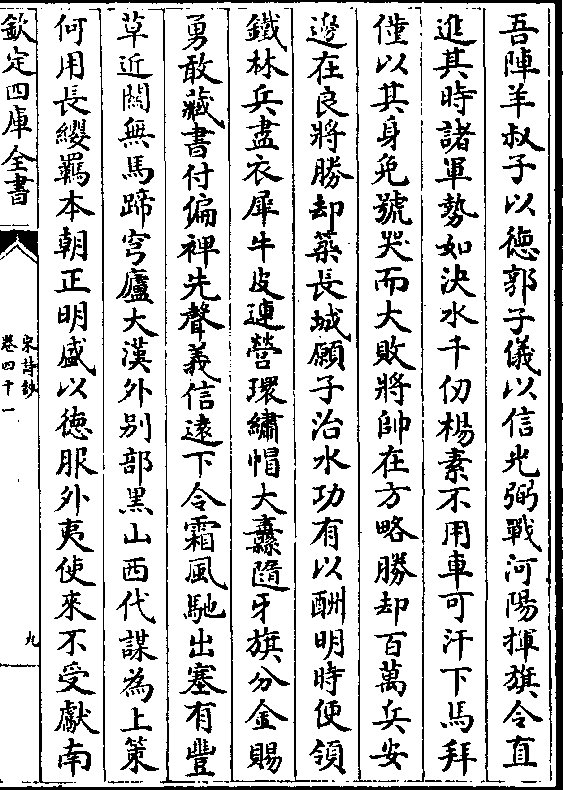 吾陣羊叔子以徳郭子儀以信光弼戰河陽揮旗令直
進其時諸軍勢如決水千仞楊素不用車可汗下馬拜
僅以其身免號哭而大敗將帥在方略勝却百萬兵安
邊在良將勝却築長城願子治水功有以酬明時便領
鐵林兵盡衣犀牛皮連營環繡帽大纛隨牙旗分金賜
勇敢藏書付偏裨先聲義信逺下令霜風馳出塞有豐
草近闗無馬蹄穹廬大漢外别部黒山西代謀為上策
何用長纓羈本朝正明盛以徳服外夷使來不受獻南
欽定四庫全書
宋詩鈔
卷四十一
九